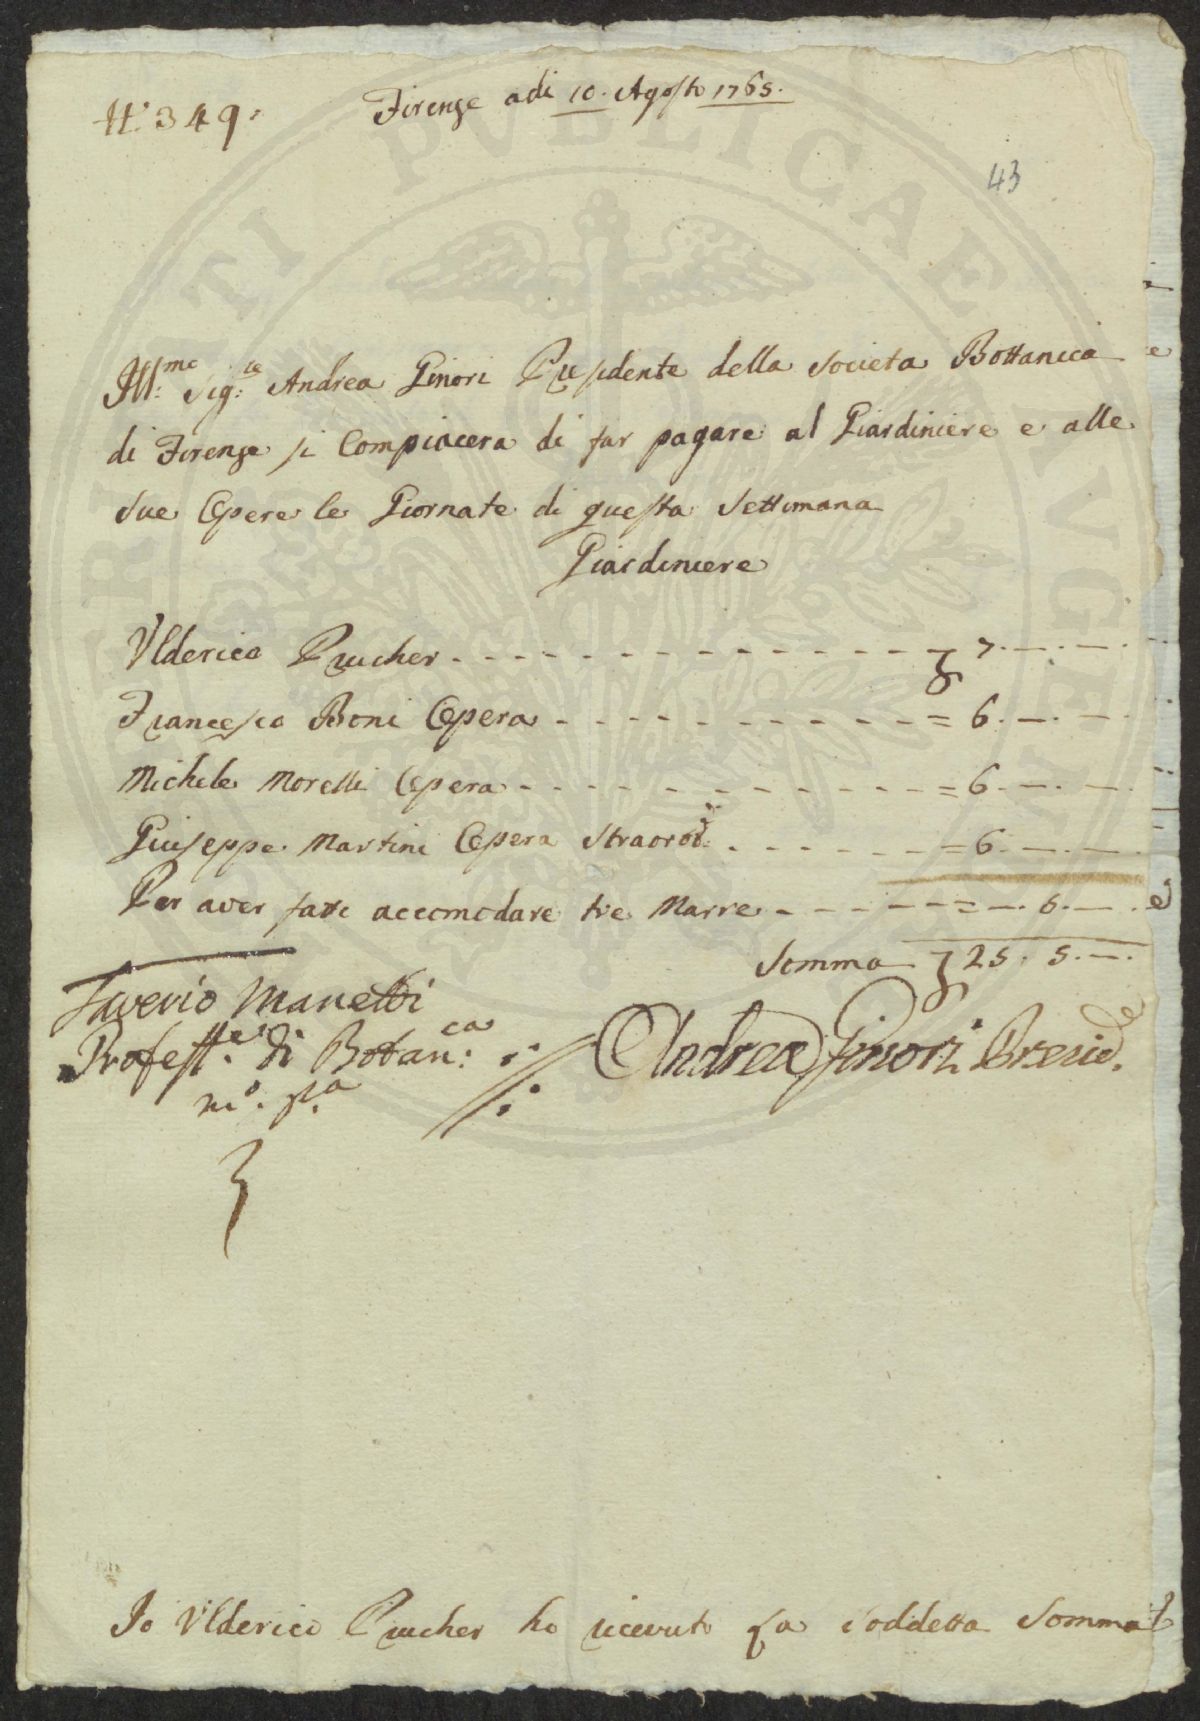 N.° 349.
Firenze adi 10. Agosto 1765.
43
Ill:mo Sig:re Andrea Ginori Presidente della Societa Bottanica
di Firenze si Compiacera di far pagare al Giardiniere e alle
sue Opere le Giornate di questa Settimana
Giardiniere
Ulderico Prucher - - - 7. — . —
Francesco Boni Opera - - - = 6. — . —
Michele Morelli Opera - - - = 6. — . —
Giuseppe Martini Opera Straord: - - - = 6. — . —
Per aver fatte accomodare tre Marre - - - = — . 5. — .
Somma 25. 5. — .
Saverio Manetti
Profess:re di Botan:ca
m.° p.a
Andrea Ginori Presid.de
Io Ulderico Prucher ho ricevuto la soddetta Somma
PVBLICAE